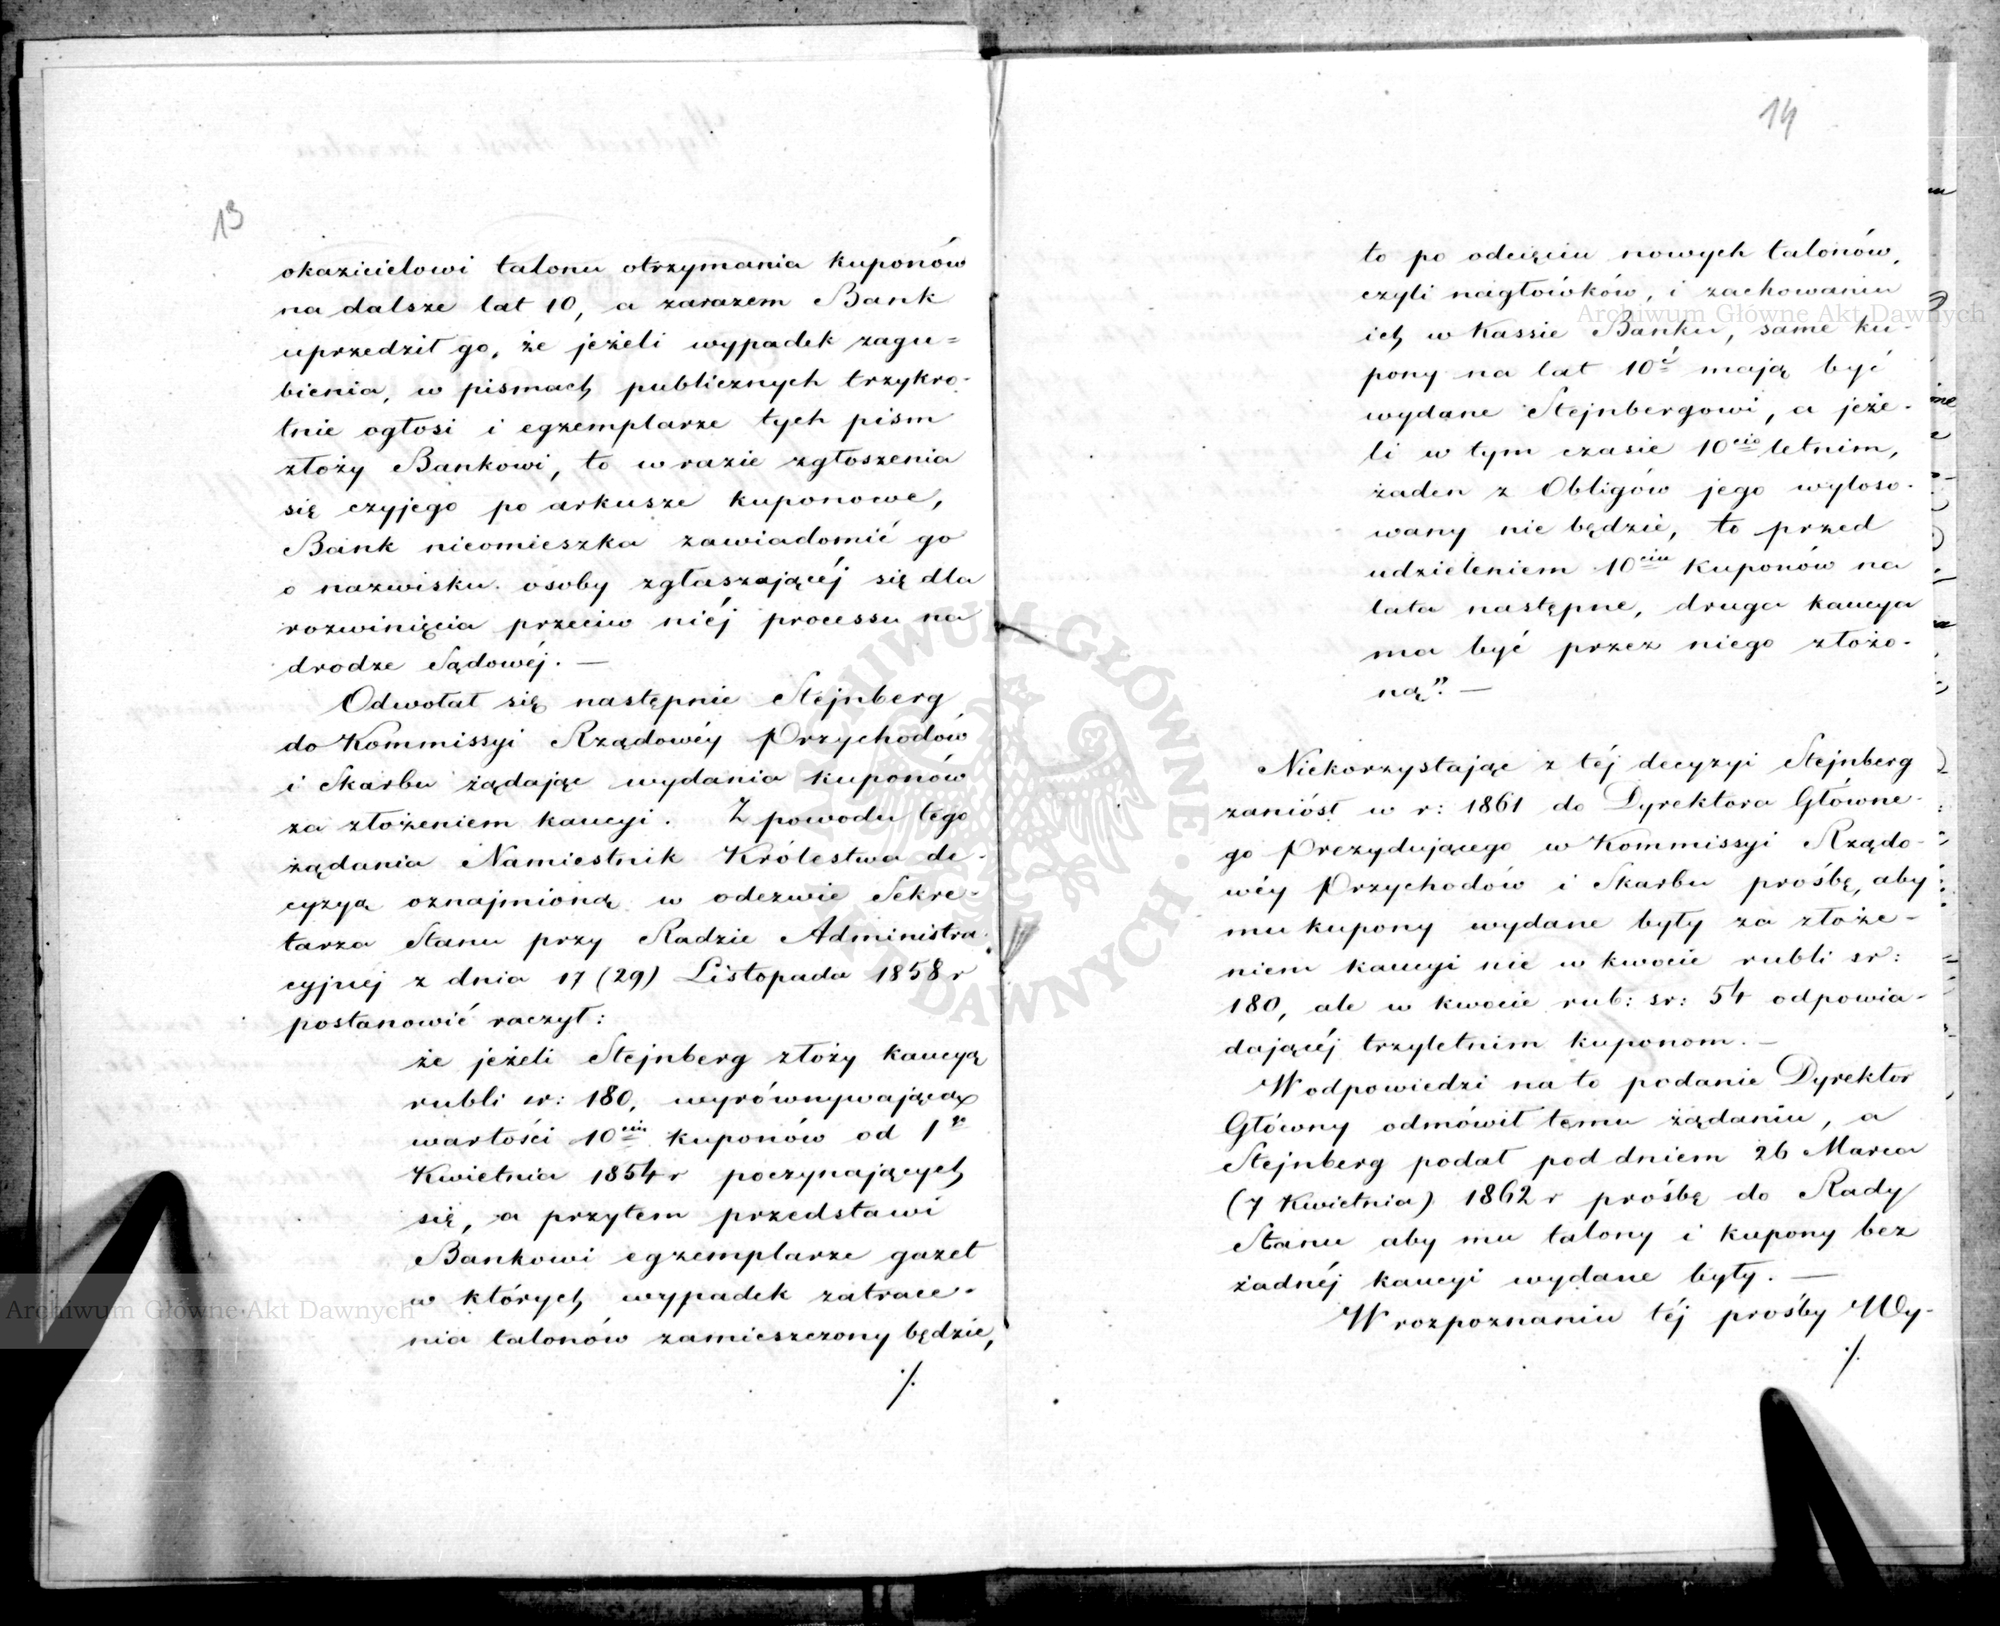 13
okazicielowi talonu otrzymania kuponów
na dalsze lat 10, a zarazem Bank
uprzedził go, że jeżeli wypadek zagu=
bienia, w pismach publicznych trzykro-
tnie ogłosi i egzemplarze tych pism
złoży Bankowi, to w razie zgłoszenia
się czyjego po arkusze kuponowe,
Bank nieomieszka zawiadomić go
o nazwisku osoby zgłaszającéj się dla
rozwinięcia przeciw niéj processu na
drodze Sądowéj. —
Odwołał się następnie Stejnberg
do Kommissyi Rządowéy Przychodów
i Skarbu żądając wydania kuponów
za złożeniem kaucyi. Z powodu tego
żądania Namiestnik Królestwa de-
cyzyą oznajmioną w odezwie Sekre-
tarza Stanu przy Radzie Administra-
cyjnej z dnia 17 (29) Listopada 1858 r
postanowić raczył:
że jeżeli Stejnberg złoży kaucyą
rubli sr: 180, wyrównywającą
wartości 10ciu kuponów od 1go
Kwietnia 1854 r poczynających
się, a przytem przedstawi
Bankowi egzemplarze gazet
w których wypadek zatrace-
nia talonów zamieszczony będzie,
./.
14
to po odcięciu nowych talonów,
czyli nagłówków, i zachowaniu
ich w Kassie Banku, same ku-
pony na lat 10ć mają być
wydane Stejnbergowi, a jeże-
li w tym czasie 10cio letnim,
żaden z Obligów jego wyloso-
wany nie będzie, to przed
udzieleniem 10ciu kuponów na
lata następne, druga kaucya
ma być przez niego złożo-
ną". —
Niekorzystając z téj decyzyi Stejnberg
zaniósł w r: 1861 do Dyrektora Główne-
go Prezydującego w Kommissyi Rządo-
wéy Przychodów i Skarbu prośbę, aby
mu kupony wydane były za złoże-
niem kaucyi nie w kwocie rubli sr:
180, ale w kwocie rub: sr: 54 odpowia-
dającéj trzyletnim kuponom. —
W odpowiedzi na to podanie Dyrektor
Główny odmówił temu żądaniu, a
Stejnberg podał pod dniem 26 Marca
(7 Kwietnia) 1862 r prośbę do Rady
Stanu aby mu talony i kupony bez
żadnéj kaucyi wydane były. —
W rozpoznaniu téj prośby Wy-
./.
Archiwum Główne Akt Dawnych
Archiwum Główne Akt Dawnych
ARCHIWUM GŁÓWNE AKT DAWNYCH